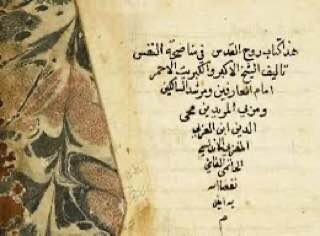 هذا كتاب روح القدس في مناصحة النفس
تاليف الشيخ الاكبر والكبريت الاحمر
امام العارفين ومرشد السالكين
ومربي المريدين محي
الدين ابن العربي
المغربي الاندلسي
الحاتمي الطائي
نفعنا الله
به امين
م